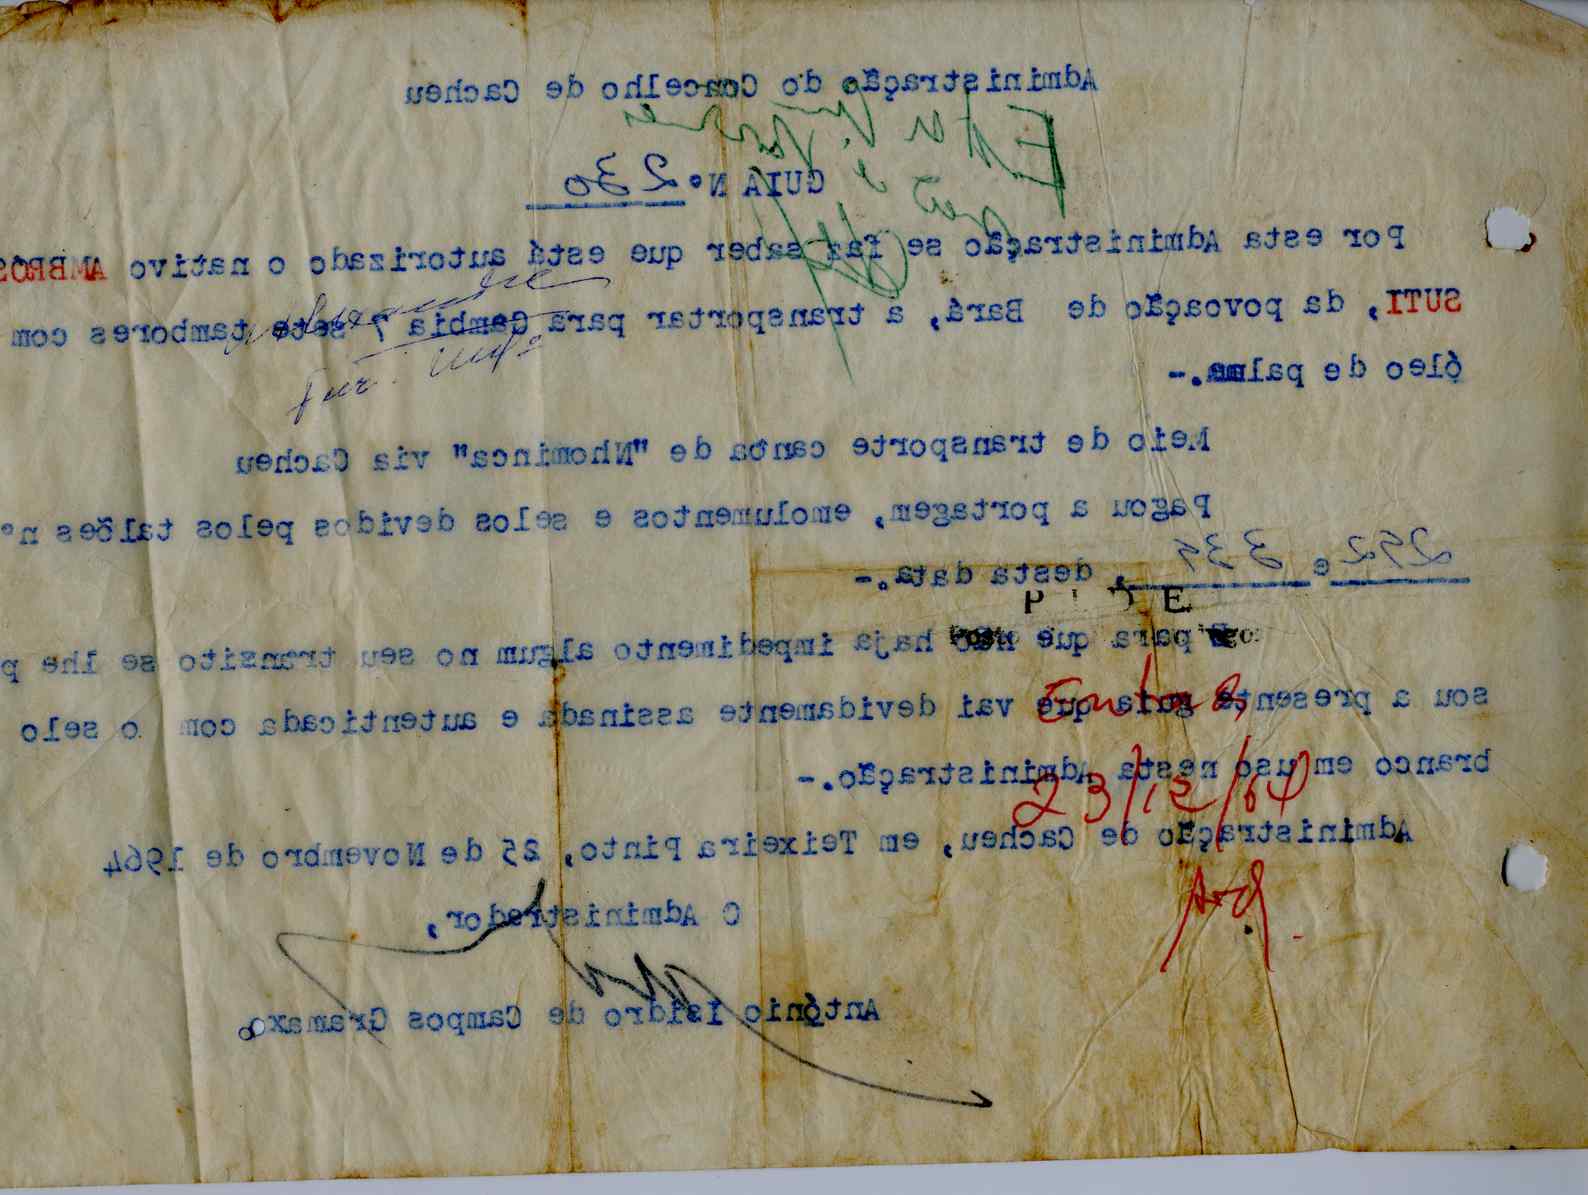 Administração do Concelho de Cacheu
GUIA Nº 230
Por esta Administração se faz saber que está autorizado o nativo AMBROS
SUTI, da povoação de Bará, a transportar para Gambia 7 sete tambores com
óleo de palma.-
Meio de transporte canoa de "Nhominca" via Cacheu
Pagou a portagem, emolumentos e selos devidos pelos talões nº
252 e 335, desta data.-
P I D E
E para que não haja impedimento algum no seu transito se lhe p
sou a presente guia que vai devidamente assinada e autenticada com o selo
branco em uso nesta Administração.-
23/12/64
Administração de Cacheu, em Teixeira Pinto, 25 de Novembro de 1964
O Administrador,
António Isidro de Campos Gramaxo